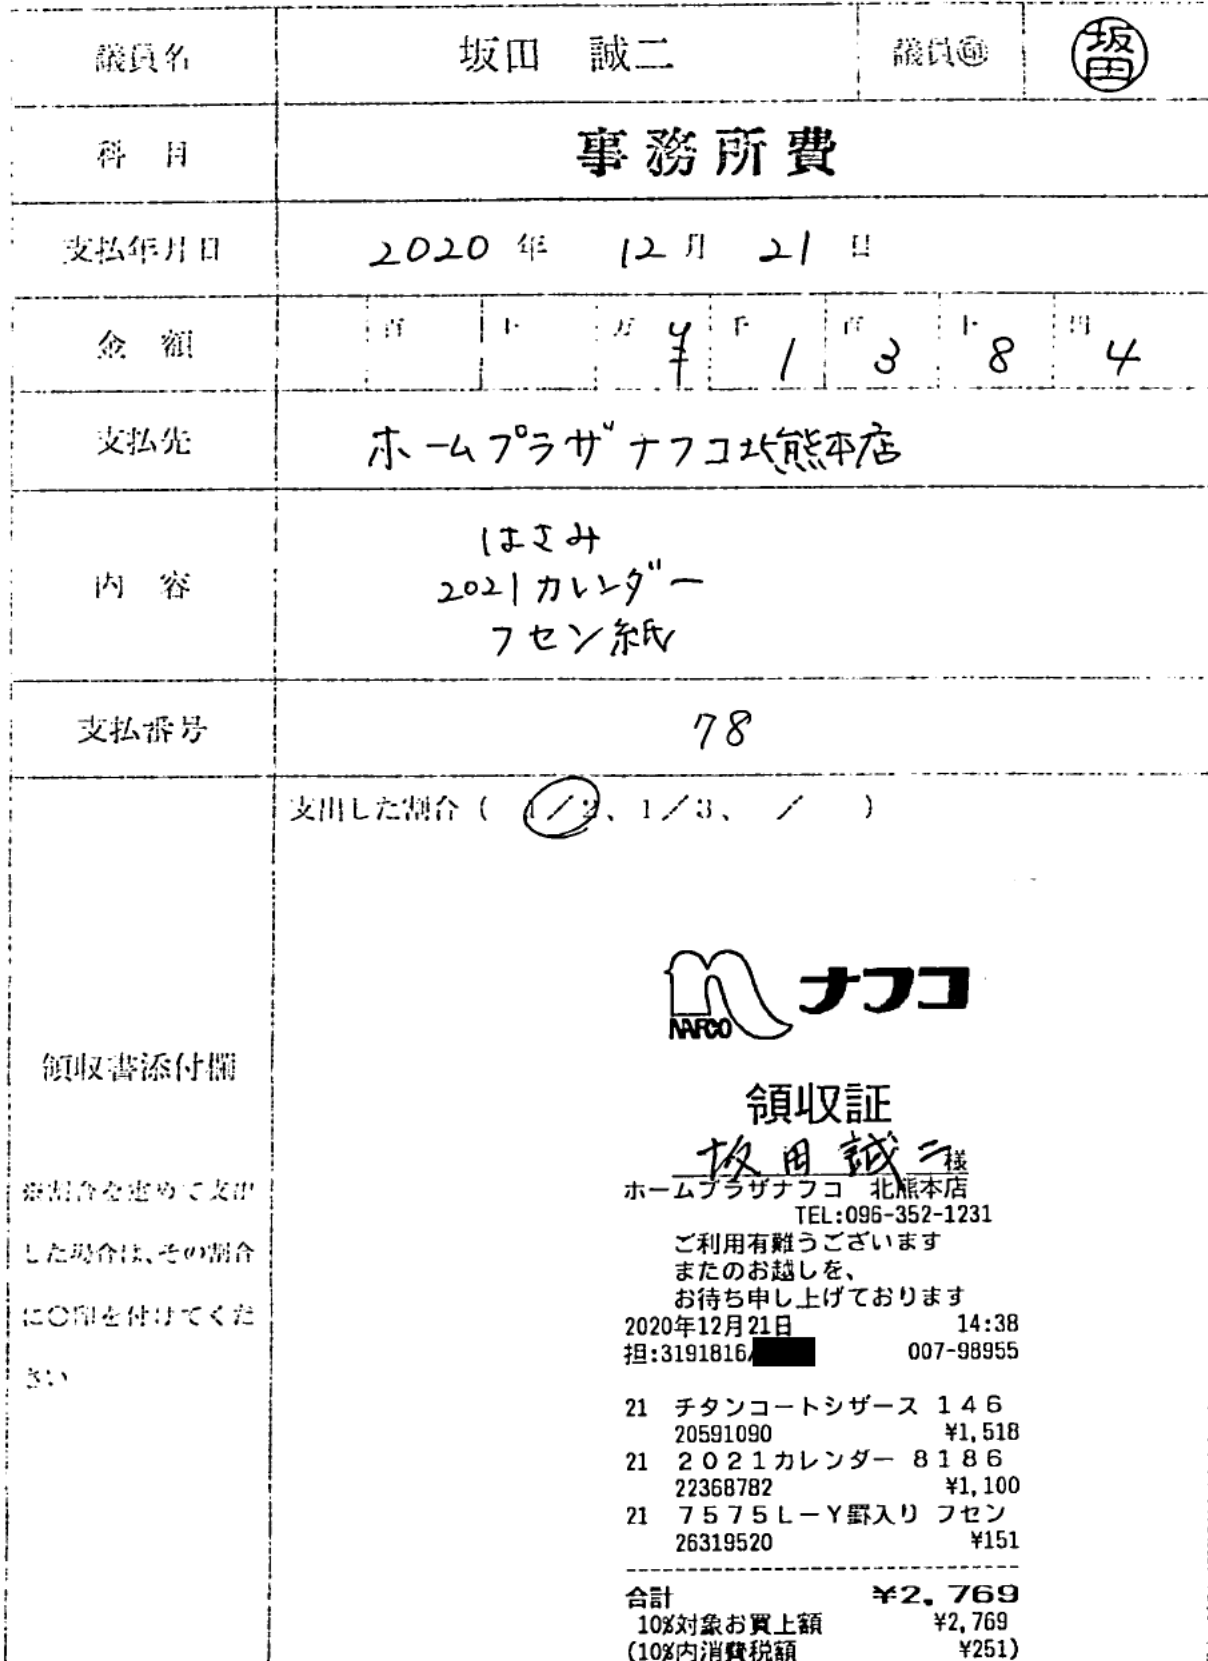 議員名 坂田 誠二 議員㊞ 坂田
科 目 事務所費
支払年月日 2020年 12月 21日
金 額 百 十 万 ¥ 千 1 百 3 十 8 円 4
支払先 ホームプラザナフコ北熊本店
内 容 はさみ
2021カレンダー
フセン紙
支払番号 78
支出した割合( 1/2、1/3、 / )
領収書添付欄
※割合を定めて支出
した場合は、その割合
に〇印を付けてくだ
さい
NAFCO ナフコ
領収証
坂田誠二様
ホームプラザナフコ 北熊本店
TEL:096-352-1231
ご利用有難うございます
またのお越しを、
お待ち申し上げております
2020年12月21日 14:38
担:3191816 007-98955
21 チタンコートシザース 146
20591090 ¥1,518
21 2021カレンダー 8186
22368782 ¥1,100
21 7575L-Y罫入り フセン
26319520 ¥151
合計 ¥2,769
10%対象お買上額 ¥2,769
(10%内消費税額 ¥251)